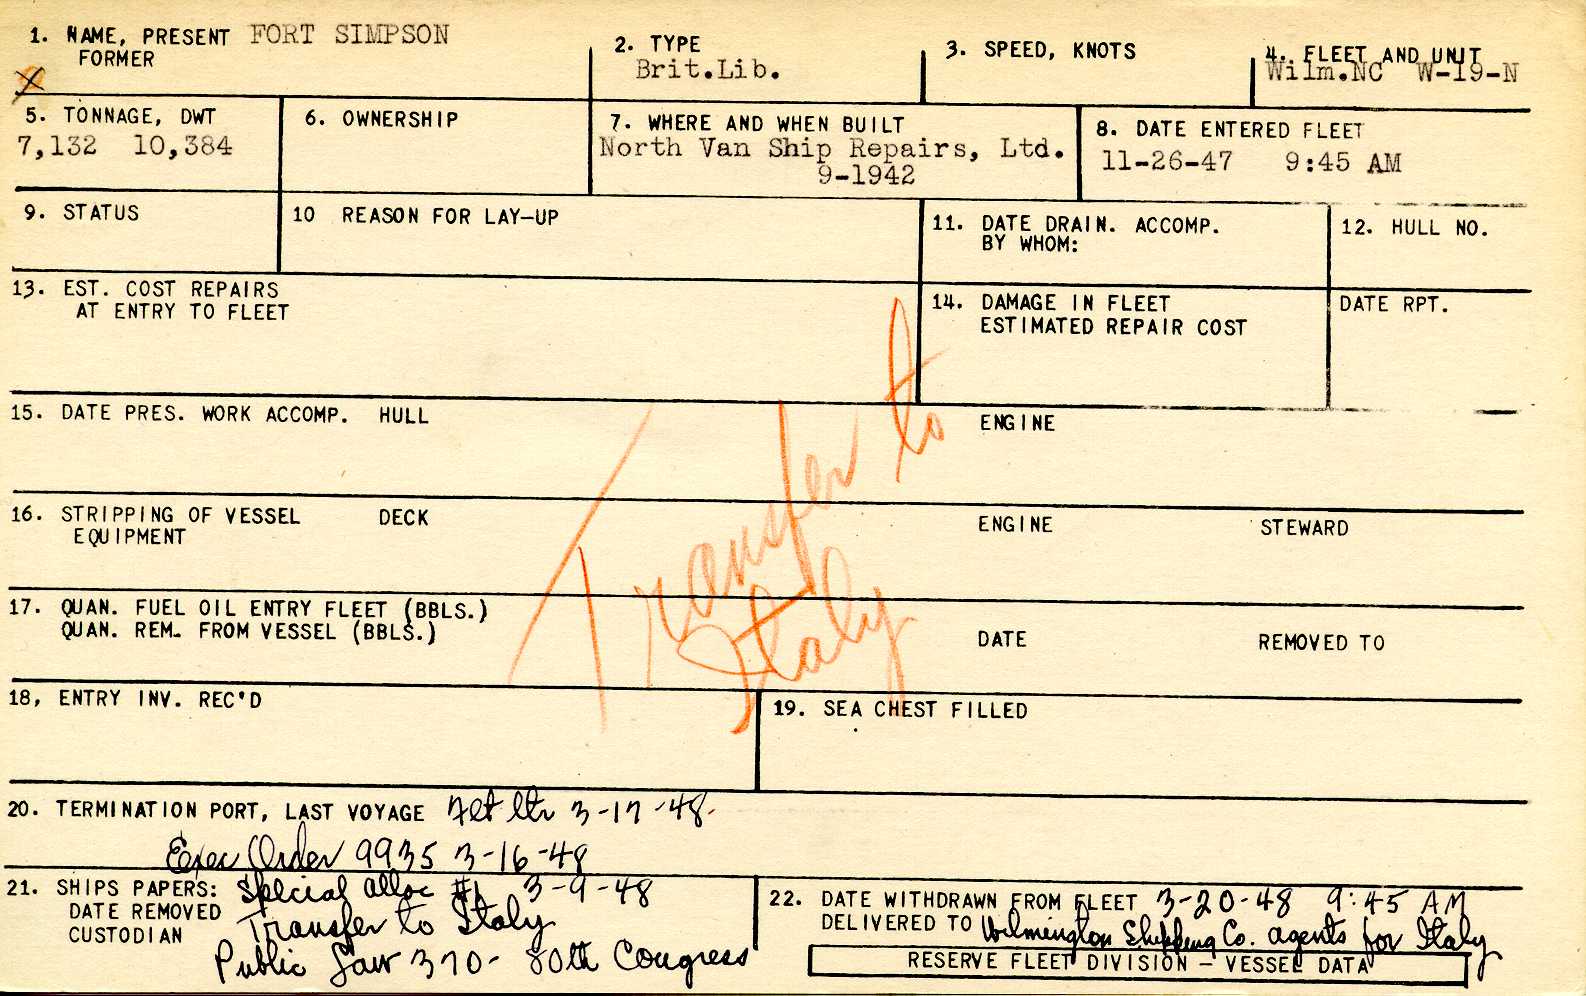 1. NAME, PRESENT FORT SIMPSON
FORMER
2. TYPE
Brit.Lib.
3. SPEED, KNOTS
4. FLEET AND UNIT
Wilm.NC W-19-N
5. TONNAGE, DWT
7,132 10,384
6. OWNERSHIP
7. WHERE AND WHEN BUILT
North Van Ship Repairs, Ltd.
9-1942
8. DATE ENTERED FLEET
11-26-47 9:45 AM
9. STATUS
10 REASON FOR LAY-UP
11. DATE DRAIN. ACCOMP.
BY WHOM:
12. HULL NO.
13. EST. COST REPAIRS
AT ENTRY TO FLEET
14. DAMAGE IN FLEET
ESTIMATED REPAIR COST
DATE RPT.
15. DATE PRES. WORK ACCOMP. HULL
ENGINE
Transfer to
Italy
16. STRIPPING OF VESSEL DECK
EQUIPMENT
ENGINE
STEWARD
17. QUAN. FUEL OIL ENTRY FLEET (BBLS.)
QUAN. REM. FROM VESSEL (BBLS.)
DATE
REMOVED TO
18, ENTRY INV. REC'D
19. SEA CHEST FILLED
20. TERMINATION PORT, LAST VOYAGE Flt ltr 3-17-48.
Exec Order 9935 3-16-48
21. SHIPS PAPERS: Special alloc #1 3-9-48
DATE REMOVED Transfer to Italy
CUSTODIAN Public Law 370- 80th Congress
22. DATE WITHDRAWN FROM FLEET 3-20-48 9:45 AM
DELIVERED TO Wilmington Shipping Co. agents for Italy
RESERVE FLEET DIVISION – VESSEL DATA